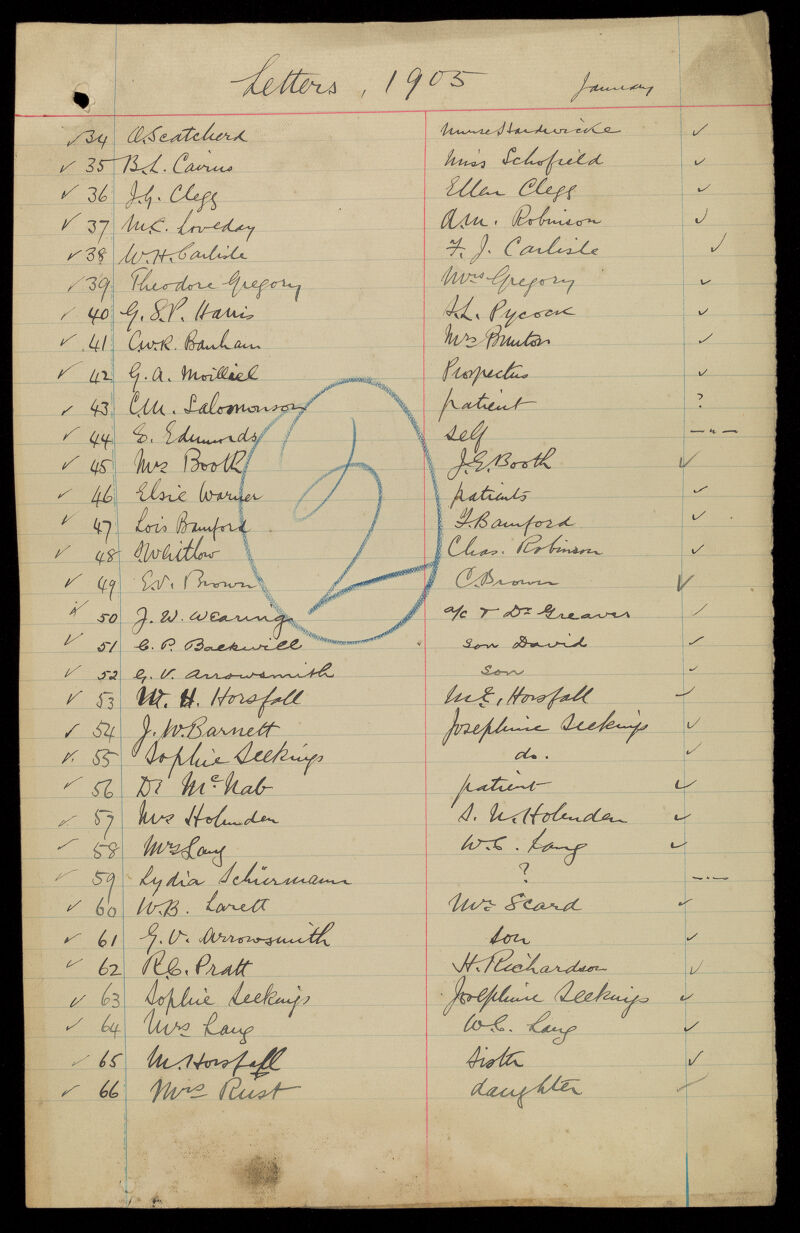 Letters, 1905 January
✓ 34 O. Scatcherd Nurse Hardwicke ✓
✓ 35 B.L. Cairns Miss Schofield ✓
✓ 36 J.G. Clegg Ellen Clegg ✓
✓ 37 M.L. Loveday A.M. Robinson ✓
✓ 38 W.H. Carlisle F. J. Carlisle ✓
✓ 39 Theodore Gregory Mrs Gregory ✓
✓ 40 G. S. P. Harris S.L. Pycock ✓
✓ 41 C.W.R. Banham Mrs Brunton ✓
✓ 42 G. A. Moilliel Prospectus ✓
✓ 43 C.M. Salomonson patient ?
✓ 44 E. Edmunds self — " —
✓ 45 Mrs Booth J.E. Booth ✓
✓ 46 Elsie Warner patients ✓
✓ 47 Lois Bamford F. Bamford ✓
✓ 48 Whitlow Chas. Robinson ✓
✓ 49 E.V. Brown C. Brown ✓
✓ 50 J. W. Wearing a/c & Dr Greaves ✓
✓ 51 C. P. Backwill son David ✓
✓ 52 G. V. Arrowsmith son ✓
✓ 53 W. H. Horsfall Horsfall ✓
✓ 54 J. W. Barnett Josephine Seekings ✓
✓ 55 Sophie Seekings do. ✓
✓ 56 Dr McNab patient ✓
✓ 57 Mrs Holmden S. N. Holmden ✓
✓ 58 Mrs Lang W.C. Lang ✓
✓ 59 Lydia Schürmann ? — " —
✓ 60 W.B. Larett Mrs Scard ✓
✓ 61 G. V. Arrowsmith son ✓
✓ 62 R.C. Pratt H. Richardson ✓
✓ 63 Sophie Seekings Josephine Seekings ✓
✓ 64 Mrs Lang W.C. Lang ✓
✓ 65 M. Horsfall sister ✓
✓ 66 Mrs Rust daughter ✓
2